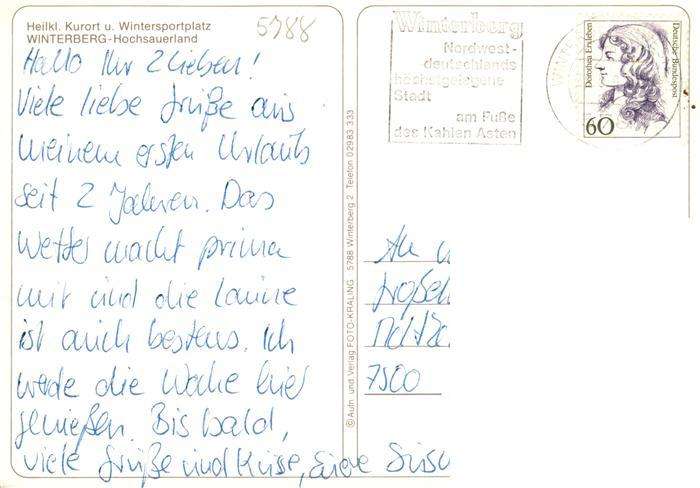 Heilkl. Kurort u. Wintersportplatz
WINTERBERG-Hochsauerland
5788
Hallo Ihr 2 lieben!
Viele liebe Grüße aus
meinem ersten Urlaub
seit 2 Jahren. Das
Wetter macht prima
mit und die Laune
ist auch bestens. Ich
werde die Woche hier
genießen. Bis bald,
viele Grüße und Küsse, Eure
© Aufn. und Verlag FOTO-KRALING 5788 Winterberg 2 Telefon 02983 333
Winterberg
Nordwest-
deutschlands
höchstgelegene
Stadt
am Fuße
des Kahlen Asten
Dorothea Erxleben
Deutsche Bundespost
60
An
7500